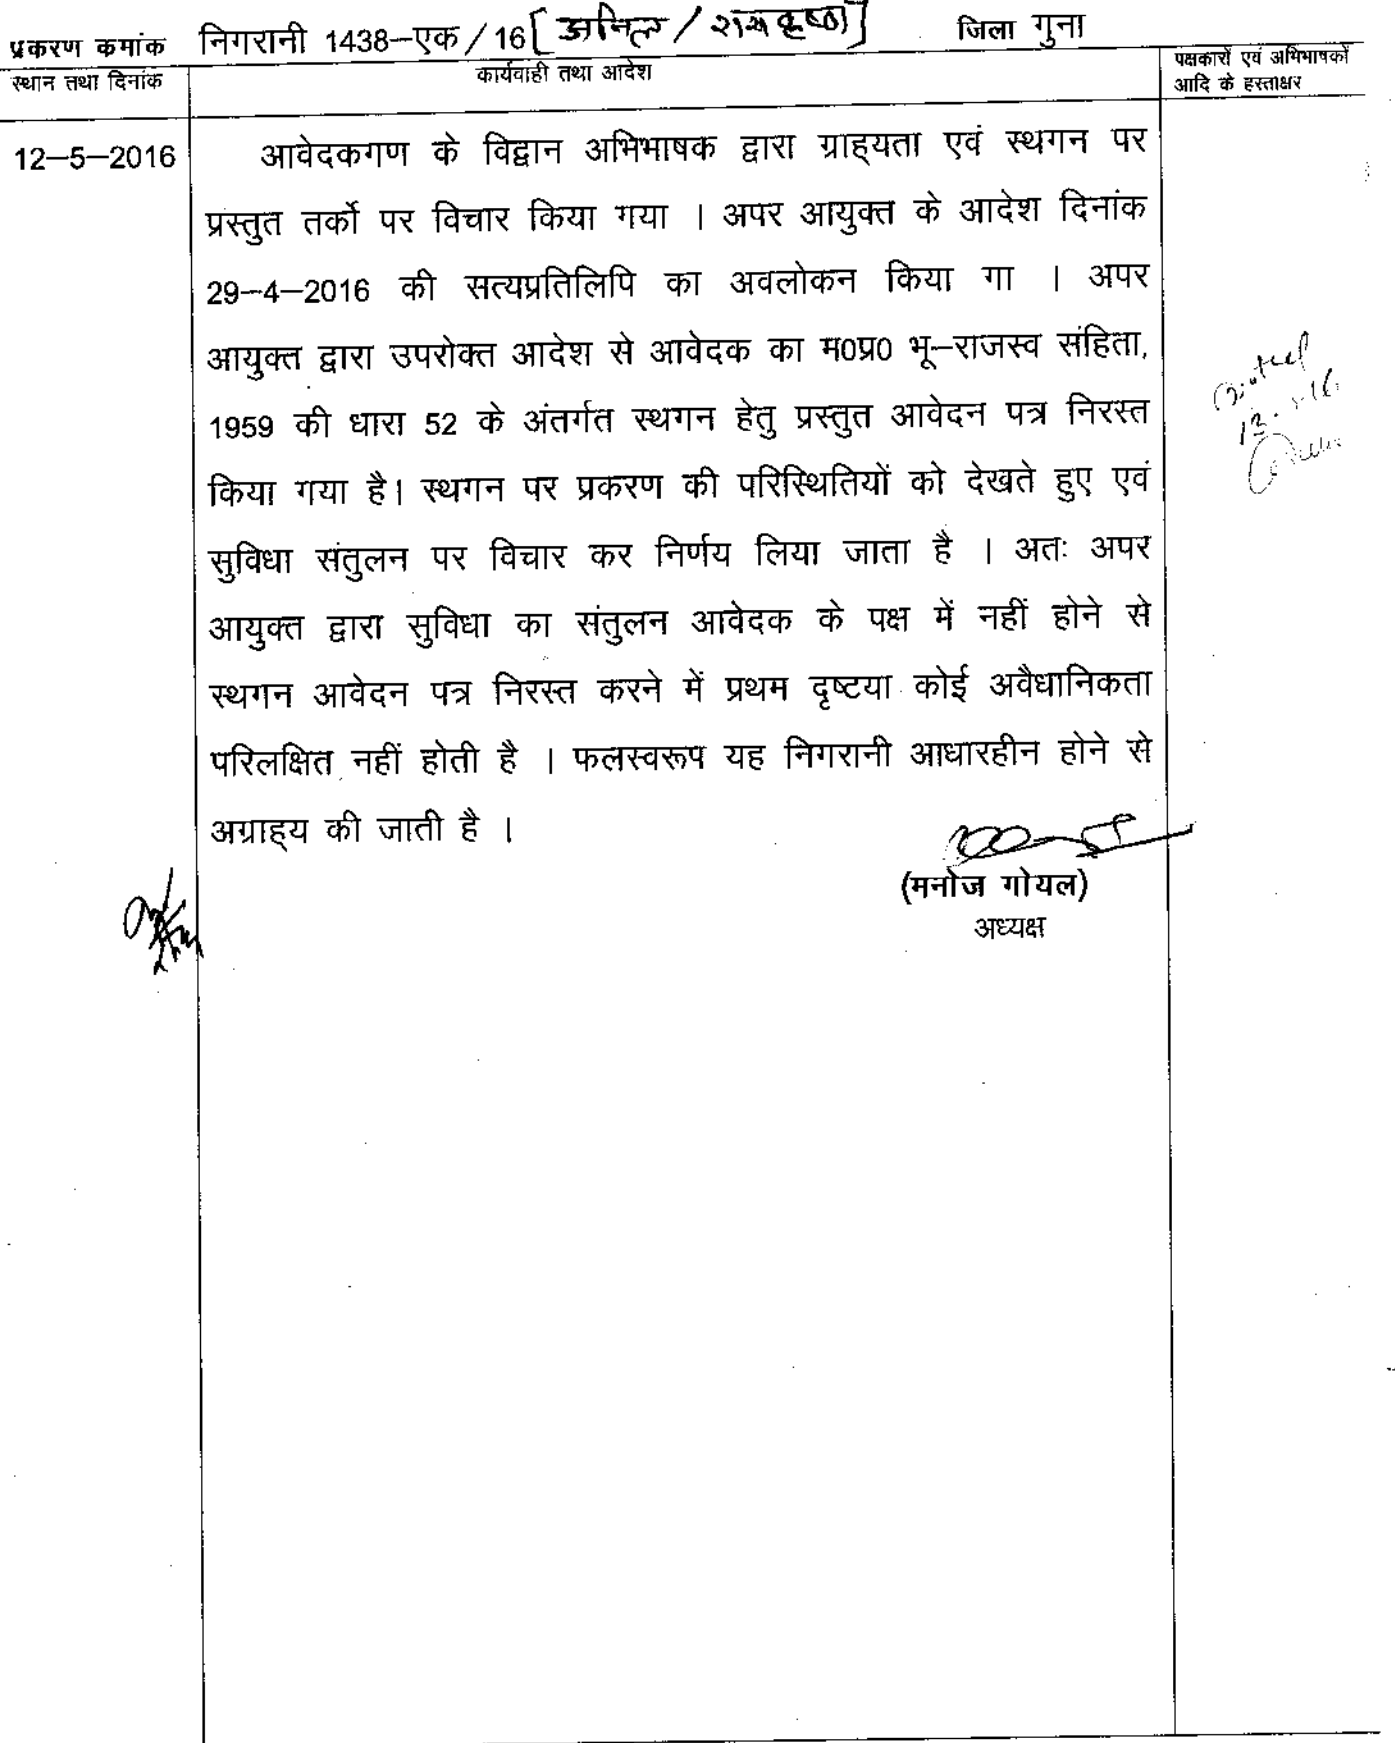 प्रकरण कमांक निगरानी 1438–एक / 16 [ अनिल / रामकृष्ण ] जिला गुना
स्थान तथा दिनांक
कार्यवाही तथा आदेश
पक्षकारों एवं अभिभाषकों
आदि के हस्ताक्षर
12–5–2016
आवेदकगण के विद्वान अभिभाषक द्वारा ग्राह्यता एवं स्थगन पर
प्रस्तुत तर्को पर विचार किया गया । अपर आयुक्त के आदेश दिनांक
29–4–2016 की सत्यप्रतिलिपि का अवलोकन किया गा । अपर
आयुक्त द्वारा उपरोक्त आदेश से आवेदक का म0प्र0 भू–राजस्व संहिता,
1959 की धारा 52 के अंतर्गत स्थगन हेतु प्रस्तुत आवेदन पत्र निरस्त
किया गया है। स्थगन पर प्रकरण की परिस्थितियों को देखते हुए एवं
सुविधा संतुलन पर विचार कर निर्णय लिया जाता है । अतः अपर
आयुक्त द्वारा सुविधा का संतुलन आवेदक के पक्ष में नहीं होने से
स्थगन आवेदन पत्र निरस्त करने में प्रथम दृष्टया कोई अवैधानिकता
परिलक्षित नहीं होती है । फलस्वरूप यह निगरानी आधारहीन होने से
अग्राह्य की जाती है ।
(मनोज गोयल)
अध्यक्ष